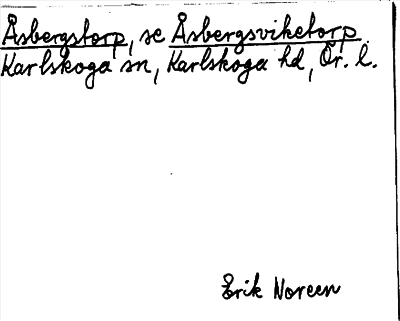 Åsbergstorp, se Åsbergsviketorp
Karlskoga sn, Karlskoga hd, Ör. l.
Erik Noreen